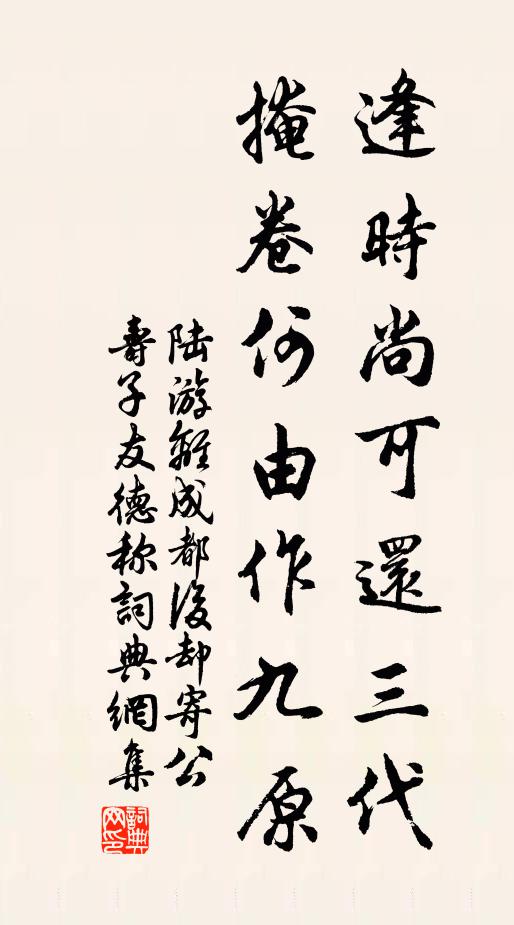 逢時尚可還三代
掩卷何由作九原
陆游離成都後却寄公
壽子友德称詞典網集
詞典
网印